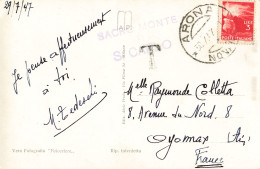 29/7/47
SACRO MONTE
S. CARLO
T
ARONA
Je pense affectueusement
à toi.
M. Tedeschi
Melle Raymonde Colletta
8, Avenue du Nord. 8
Oyonnax (Ain)
France
Vera Fotografia
Rip. interdetta